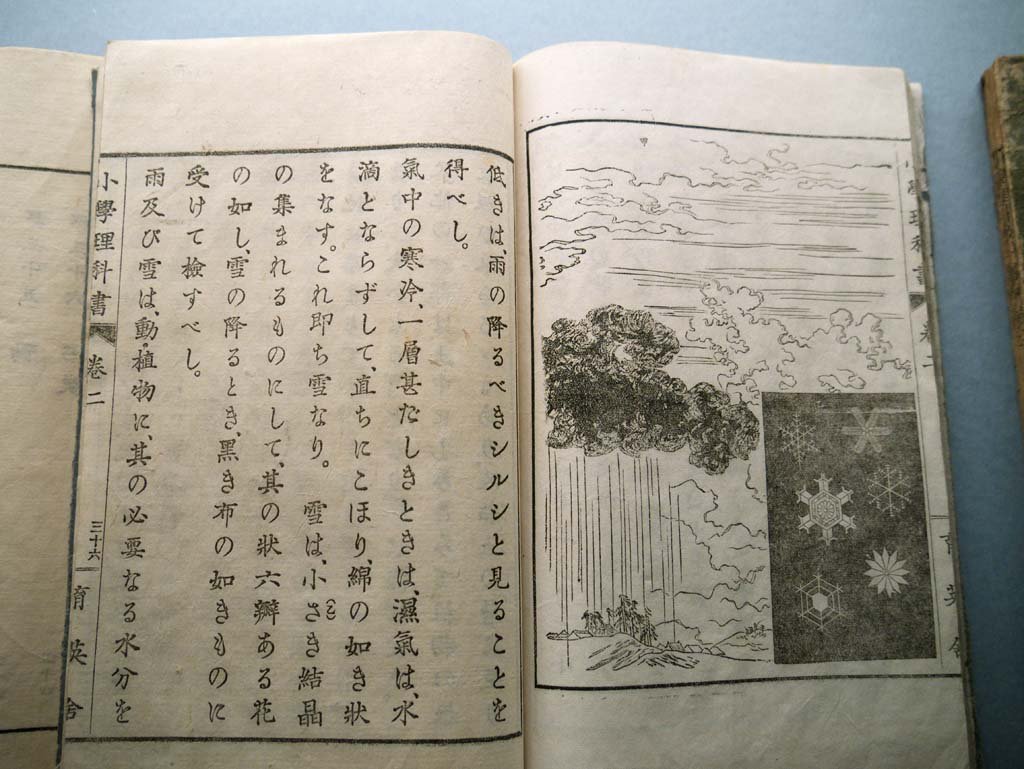 甲
低きは、雨の降るべきシルシと見ることを
得べし。
氣中の寒冷、一層甚だしきときは、濕氣は、水
滴とならずして、直ちにこほり、綿の如き狀
をなす。これ即ち雪なり。 雪は、小さき結晶
の集まれるものにして、其の狀六瓣ある花
の如し、雪の降るとき、黑き布の如きものに
受けて檢すべし。
雨及び雪は、動・植物に、其の必要なる水分を
小學理科書 卷二 三十六 育英舍